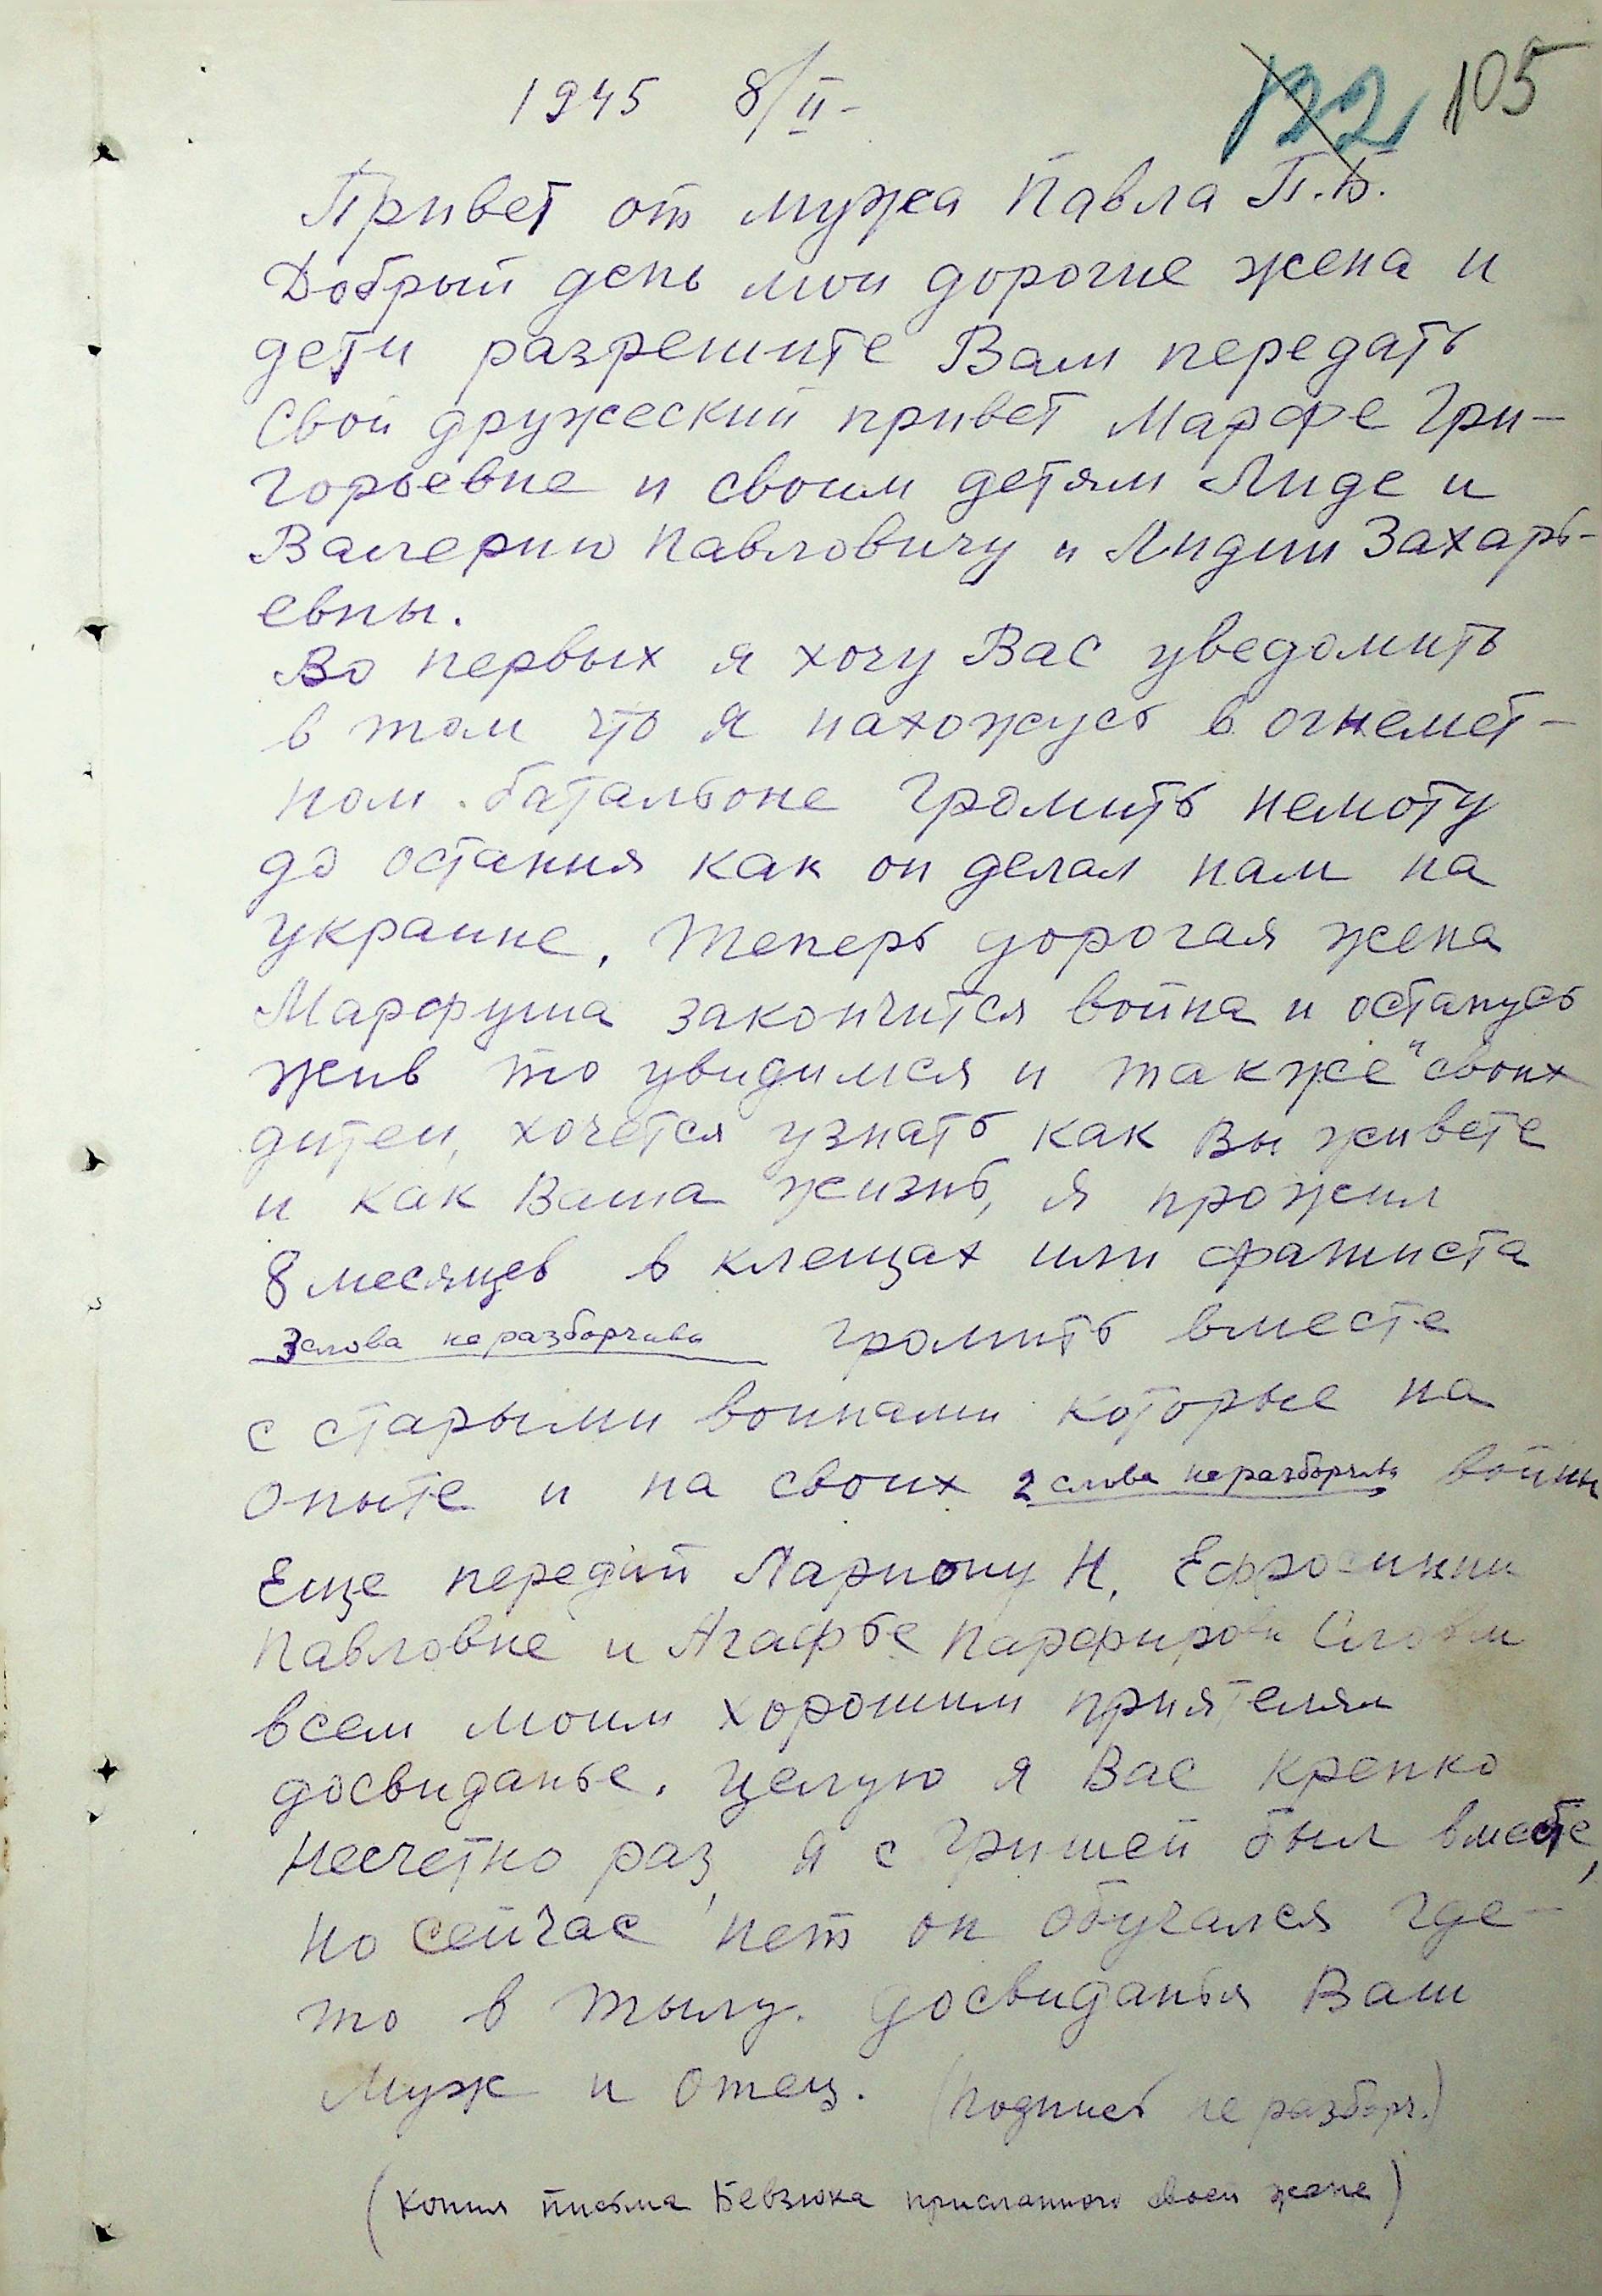 1945 8/II-
122 105
Привет от мужа Павла П.Б.
Добрый день мои дорогие жена и
дети разрешите Вам передать
Свой дружеский привет Марфе Гри-
горьевне и своим детям Лиде и
Валерию Павловичу и Лидии Захарь-
евны.
Во первых я хочу Вас уведомить
в том что я нахожусь в огнемет-
ном батальоне громить немоту
до остання как он делал нам на
украине. Теперь дорогая жена
Марфуша закончится война и останусь
жив то увидимся и также и своих
дитей, хочется узнать как Вы живете
и как Ваша жизнь, я прожил
8 месяцев в клещах или фашиста
3 слова неразборчиво громить вместе
с старыми воинами которые на
опыте и на своих 2 слова неразборчиво войны
Еще передай Лариону Н. Ефросинии
Павловне и Агафье Парфировн Словм
всем моим хорошим приятелям
досвиданье. Целую я Вас крепко
несчетно раз, я с Гришей был вместе,
но сейчас нет он обучался где-
то в тылу. Досвиданья Ваш
Муж и Отец. (подпись не разборч.)
(Копия письма Бевзюка присланного своей жене)